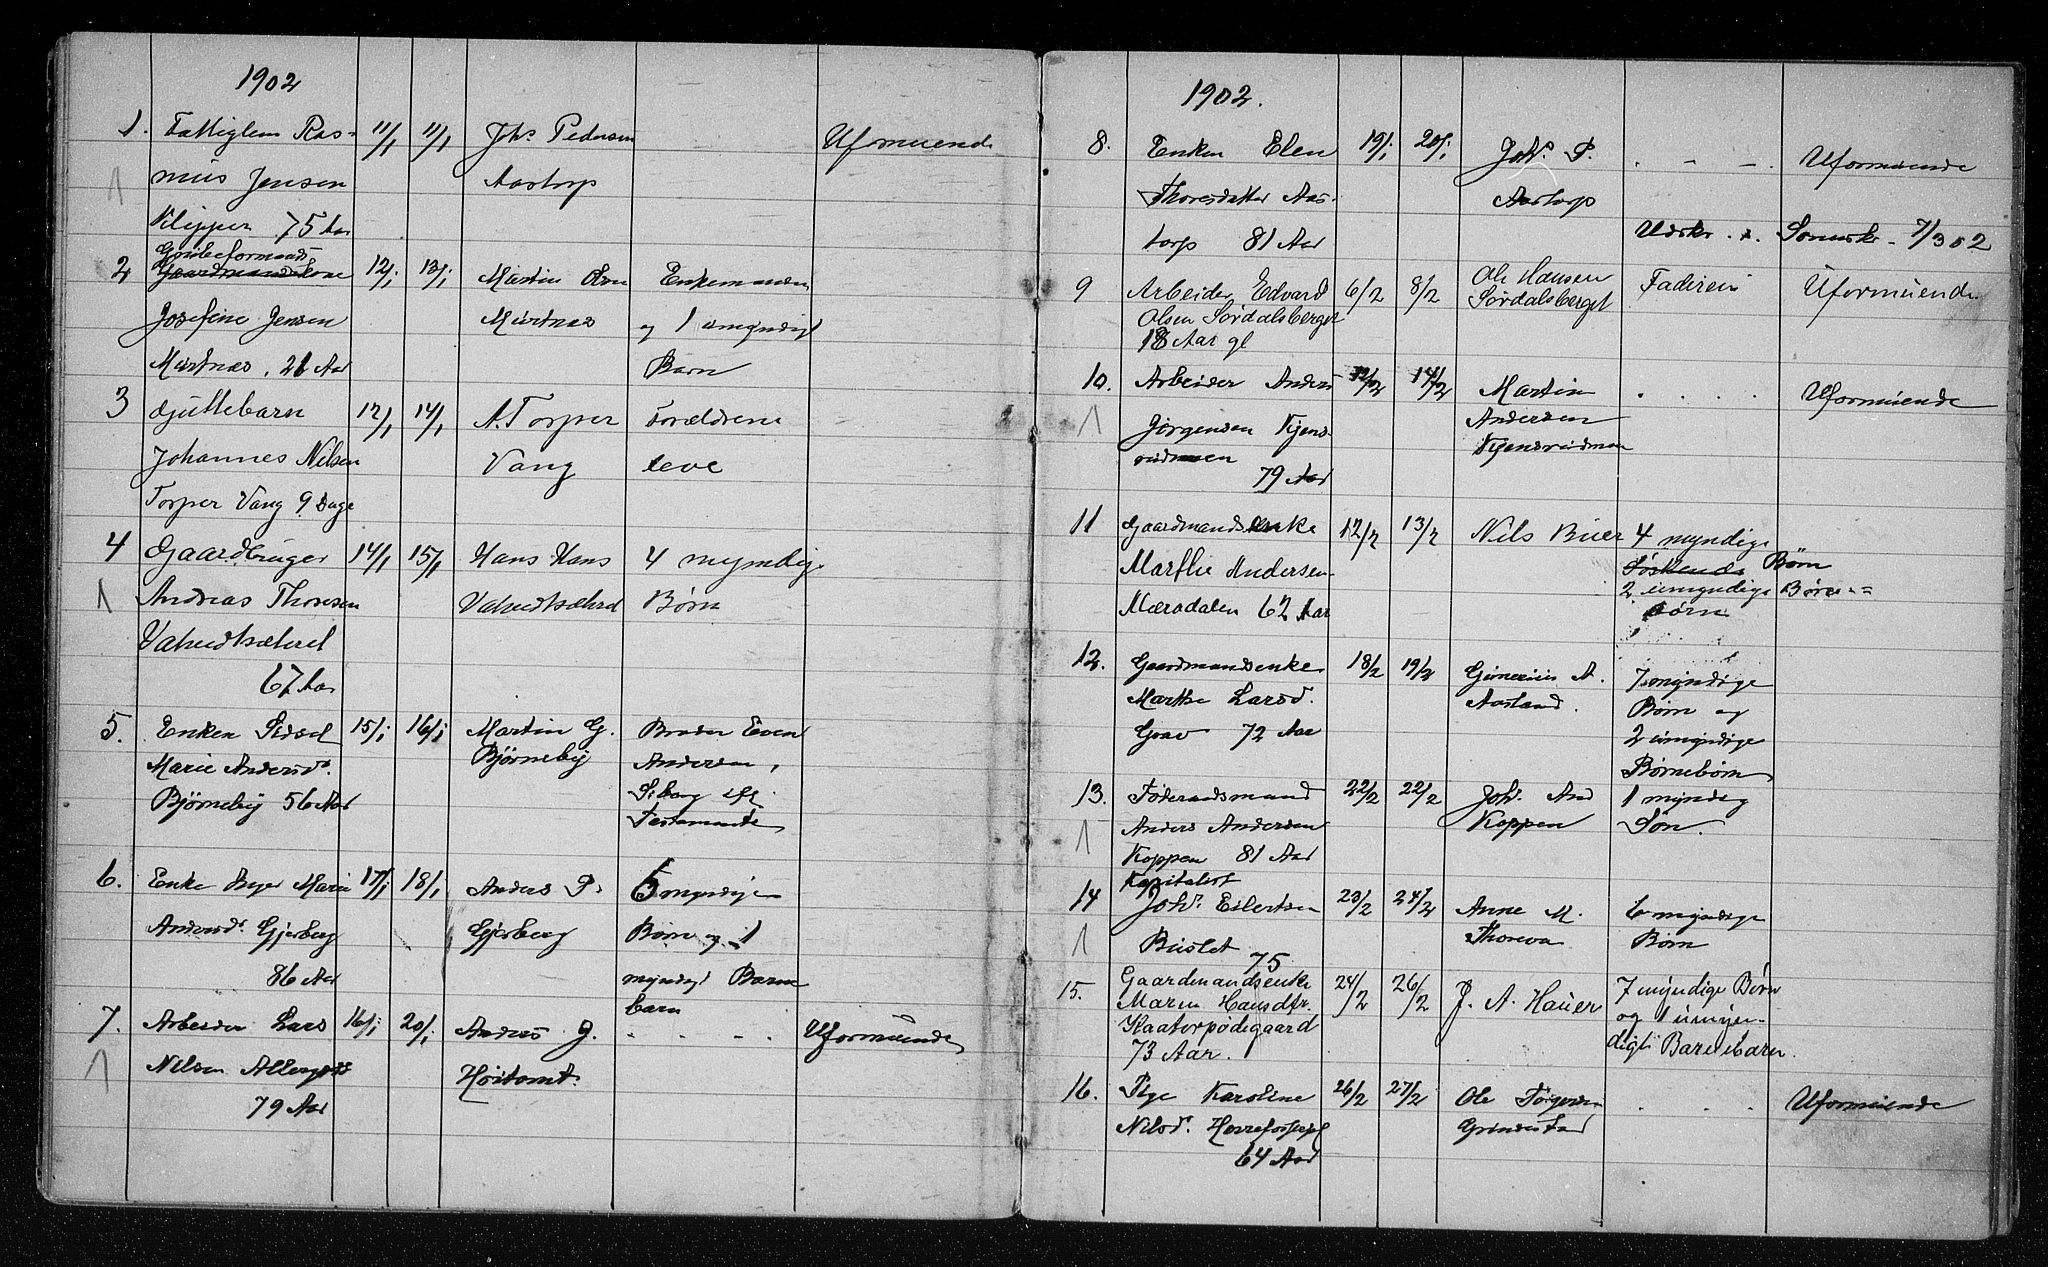 1902
1. Fattiglem Ras- 11/1 11/1 Johs. Pedersen Uformuende
mus Jensen Aastorp
Klipper 75 Aar
Grubeformands
2 Gaardmandskone 12/1 13/1 Martin Olsen Enkemanden
Josefine Jensen Murtnæs og 1 umyndigt
Murtnæs, 21 Aar Barn
3 Guttebarn 12/1 14/1 A. Torper Forældrene
Johannes Nilsen Vang leve
Torper Vang 9 Dage
4 Gaardbruger 14/1 15/1 Hans Hans 4 myndige
1 Andreas Thoresen Børn
67 Aar
5. Enken Sidsel 15/1 16/1 Martin G. Broder Even
Marie Andersd. Bjørneby Andersen,
Bjørneby 56 Aar
Testamente
6. Enke Marie 17/1 18/1 Anders P. 5 myndige
Andersd. Gjerberg Gjerberg Børn og 1
86 Aar myndigt Barne
barn
7. Arbeider Lars 16/1 20/1 Anders J. . . . . Uformuende
1 Nilsen Høitomt.
79 Aar
1902.
8. Enken Elen 19/1 20/1 Johs. P. . - - . Uformuende
Thoresdatter Aas- Aastorp
torp 81 Aar Udskr. 7/3 02
9 Arbeider Edvard 6/2 8/2 Ole Hansen Faderen Uformuende
Olsen Sørdalsberget Sørdalsberget
18 Aar gl
10. Arbeider Anders 12/2 14/2 Martin . . . . Uformuende
1 Jørgensen Kjens- Andersen
rudmoen Kjensrudmoen
79 Aar
11 Gaardmandsenke 12/2 13/2 Nils Buer 4 myndige
Marthe Andersen Søskende Børn
Mærradalen 62 Aar 2 umyndige Børne-
børn
12. Gaardmandsenke 18/2 19/2 A. 7 myndige
Marthe Larsd. Aasland. Børn og
Graav 72 Aar 2 umyndige
Børnebørn
13. Føderaadsmand 22/2 22/2 Johs. And 1 myndig
1 Anders Andersen Koppen Søn.
Koppen 81 Aar
Kapitalist
14 Johs. Eilertsen 23/2 24/2 Anne M. 6 myndige
1 Buslet Thoresen Børn
75
15. Gaardmandsenke 24/2 26/2 J. A. Hauer 7 myndige Børn
Maren Hansdtr. og 1 umyn-
Kaatorpødegaard digt Barnebarn.
73 Aar.
16. Pige Karoline 26/2 27/2 Ole . . . Uformuende
Nilsd. Grindstad
64 Aar